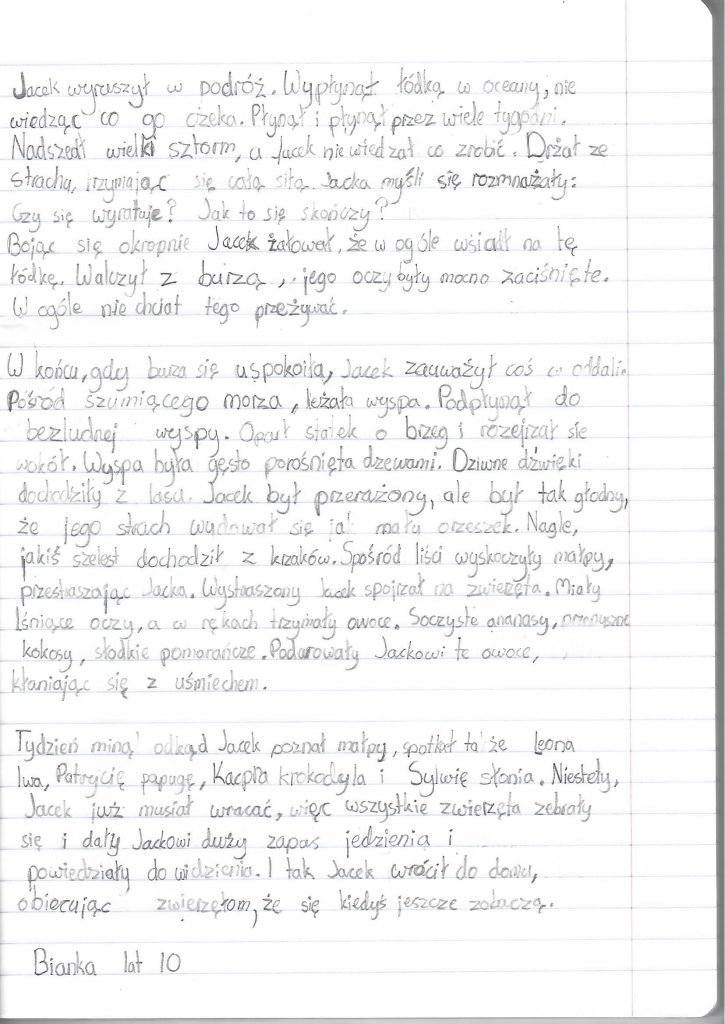 Jacek wyruszył w podróż. Wypłynął łódką w oceany, nie
wiedząc co go czeka. Płynął i płynął przez wiele tygodni.
Nadszedł wielki sztorm, a Jacek nie wiedział co zrobić. Drżał ze
strachu, trzymając się całą siłą. Jacka myśli się rozmnażały:
Czy się wyratuje? Jak to się skończy?
Bojąc się okropnie Jacek żałował, że w ogóle wsiadł na tę
łódkę. Walczył z burzą, jego oczy były mocno zaciśnięte.
W ogóle nie chciał tego przeżywać.
W końcu, gdy burza się uspokoiła, Jacek zauważył coś w oddali.
Pośród szumiącego morza, leżała wyspa. Podpłynął do
bezludnej wyspy. Oparł statek o brzeg i rozejrzał sie
wokół. Wyspa była gęsto porośnięta dzewami. Dziwne dźwięki
dochodziły z lasu. Jacek był przerażony, ale był tak głodny,
że jego strach wydawał się ja' mały orzeszek. Nagle,
jakiś szelest dochodził z krzaków. Spośród liści wyskoczyły małpy,
przestraszając Jacka. Wystraszony Jacek spojrzał na zwierzęta. Miały
lśniące oczy, a w rękach trzymały owoce. Soczyste ananasy, przepyszne
kokosy, słodkie pomarańcze. Podarowały Jackowi te owoce,
kłaniając się z uśmiechem.
Tydzień miną' odkąd Jacek poznał małpy, spotkał ta że Leona
lwa, Patrycię papugę, Kacpra krokodyla i Sylwię słonia. Niestety,
Jacek już musiał wracać, więc wszystkie zwierzęta zebrały
się i dały Jackowi duży zapas jedzenia i
powiedziały do widzienia. I tak Jacek wrócił do domu,
obiecując zwierzętom, że się kiedyś jeszcze zobaczą.
Bianka lat 10